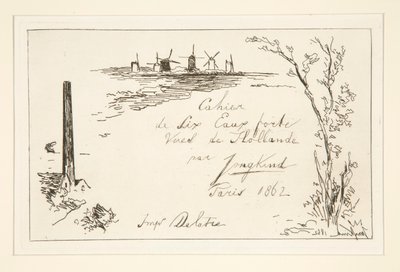 Cahier
de Six Eaux forte
Vues de Hollande
par Jongkind
Paris 1862
Imp. Delatre